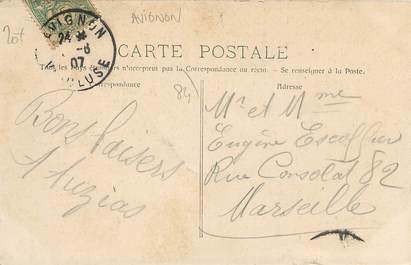 20f
AVIGNON
AVIGNON
24 *
-8
07
VAUCLUSE
CARTE POSTALE
Tous les pays étrangers n'acceptent pas la Correspondance au recto. — Se renseigner à la Poste.
Correspondance
Adresse
84
Bons baisers
Auzias
Mr et Mme
Eugène Escoffier
Rue Consolat 82
Marseille